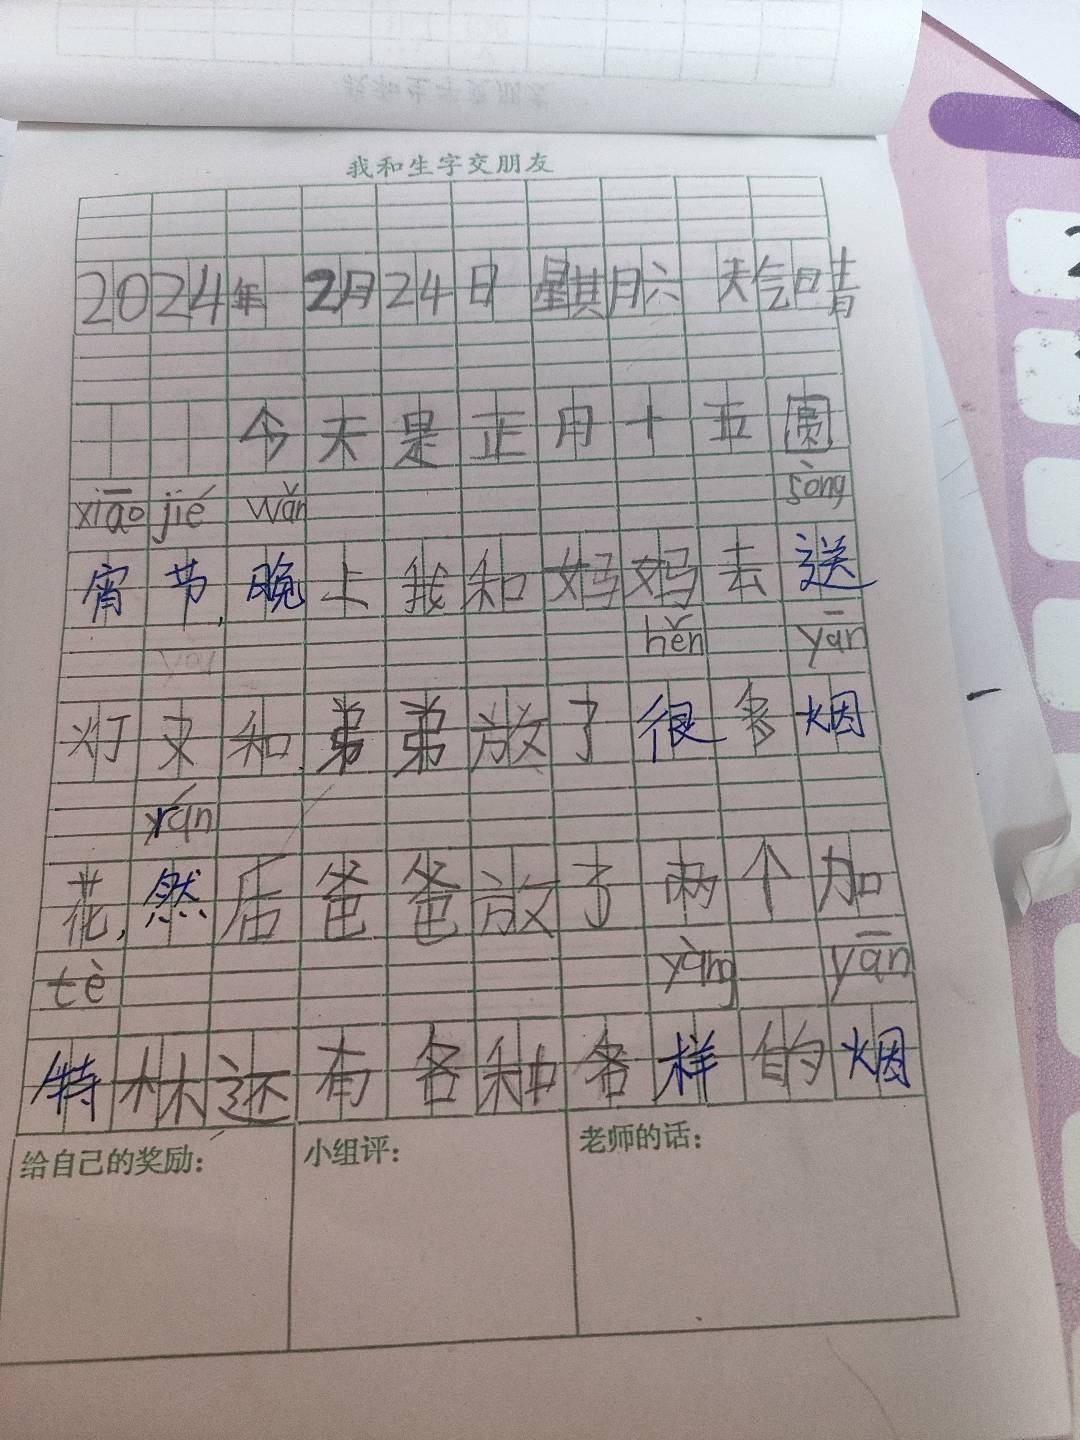 我和生字交朋友
2024年 2月24日 星其月六 天气晴
今天是正月十五圆
xiāo jié wǎn sòng
宵节,晚上我和妈妈去送
hěn yān
灯又和弟弟放了很多烟
rán
花,然后爸爸放了两个加
tè yàng yān
特林还有各种各样的烟
给自己的奖励：
小组评：
老师的话：